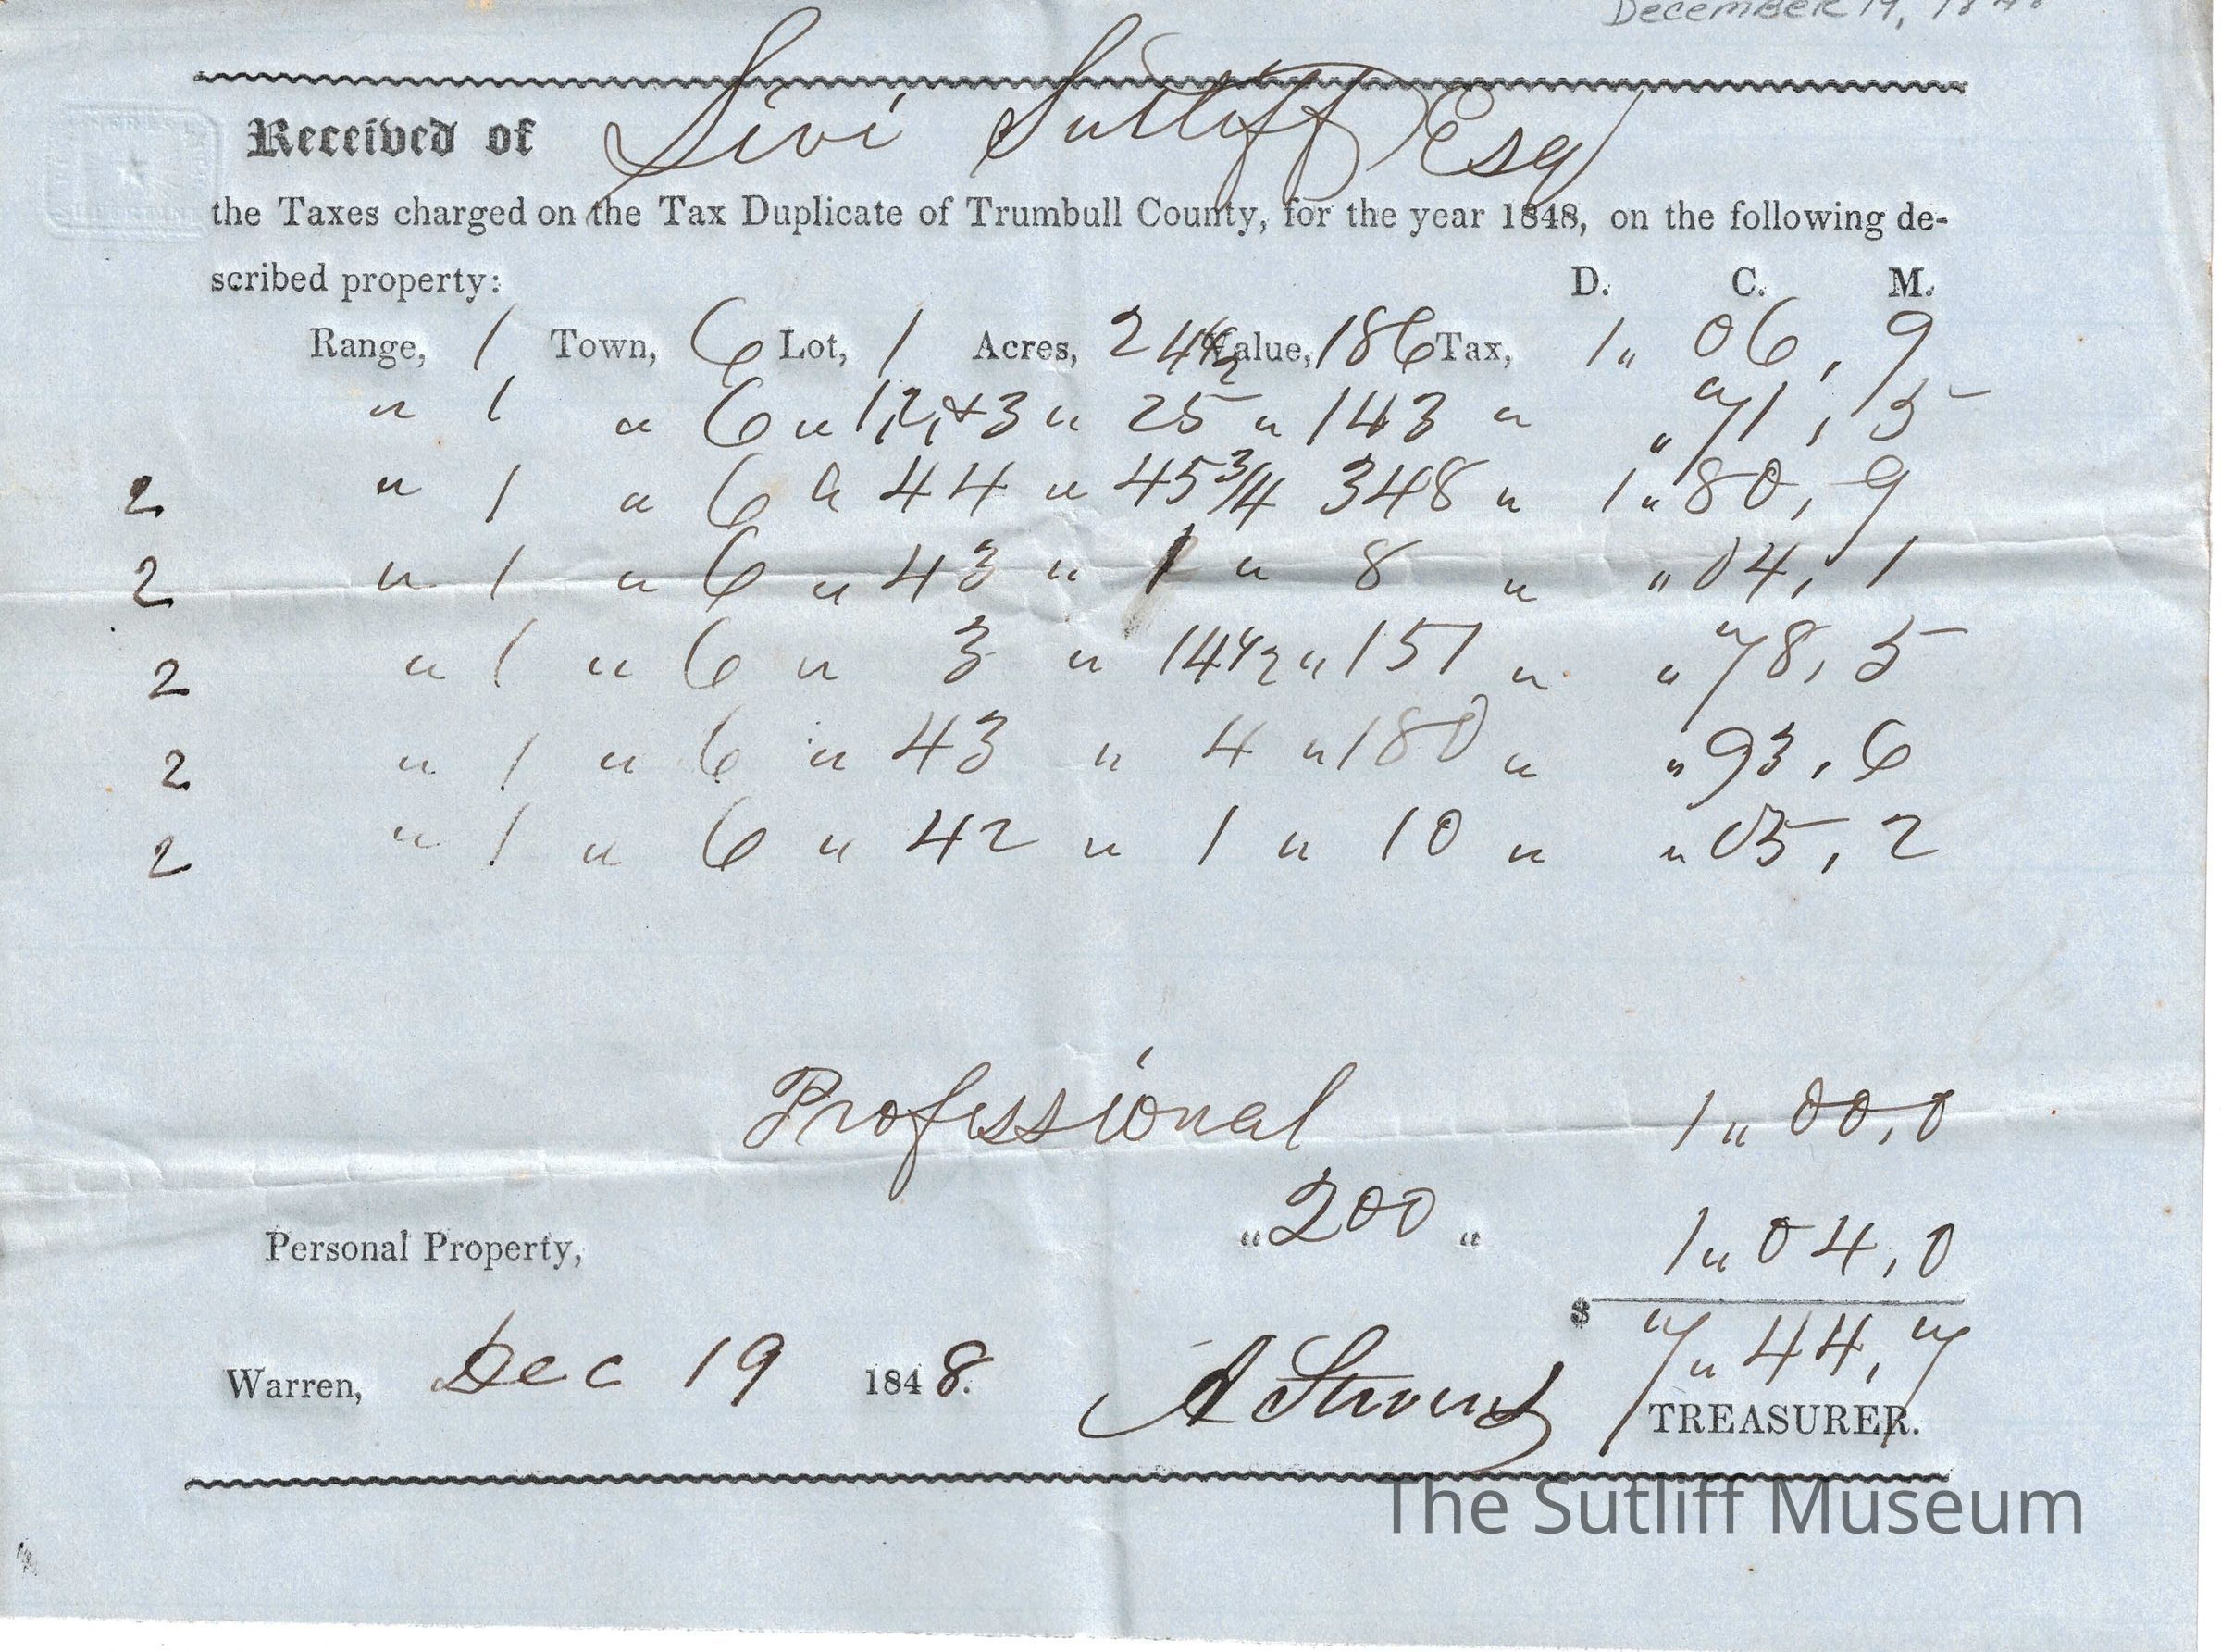 December 19, 1848
Received of Livi Sutliff Esq
the Taxes charged on the Tax Duplicate of Trumbull County, for the year 1848, on the following de-
scribed property: D. C. M.
Range, 1 Town, 6 Lot, 1 Acres, 24½ Value, 186 Tax, 1 " 06, 9
" 1 " 6 " 1, 2, & 3 " 25 " 143 " " 71, 5
2 " 1 " 6 " 44 " 45 3/4 348 " 1 " 80, 9
2 " 1 " 6 " 43 " 1 " 8 " " 04, 1
2 " 1 " 6 " 3 " 14½ " 151 " " 78, 5
2 " 1 " 6 " 43 " 4 " 180 " " 93, 6
2 " 1 " 6 " 42 " 1 " 10 " " 05, 2
Professional 1 " 00, 0
Personal Property, " 200 " 1 " 04, 0
$ 7 " 44, 7
Warren, Dec 19 1848. A Stevens TREASURER.
The Sutliff Museum